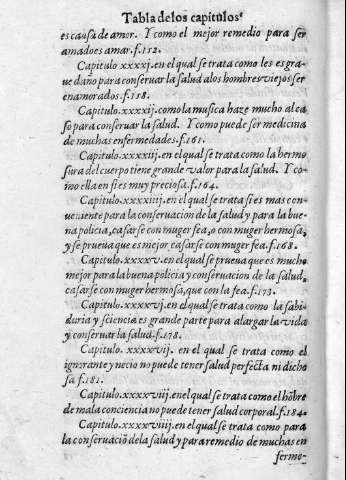 Tabla delos capitulos
es causa de amor. Y como el mejor remedio para ser
amado es amar. f.112.
Capitulo xxxxj. en el qual se trata como les es gra-
ue daño para conseruar la salud alos hombres viejos ser
enamorados. f.118.
Capitulo.xxxxij. como la musica haze mucho al ca
so para conseruar la salud. Y como puede ser medicina
de muchas enfermedades. f.161.
Capitulo.xxxxiij. en el qual se trata como la hermo
sura del cuerpo tiene grande valor para la salud. Y co-
mo ella en si es muy preciosa. f.164.
Capitulo.xxxxiiij. en el qual se trata si es mas con-
ueniente para la conseruacion de la salud y para la bue-
na policia, casarse con muger fea, o con muger hermosa,
y se prueua que es mejor casarse con muger fea. f.168.
Capitulo.xxxxv. en el qual se prueua que es mucho
mejor para la buena policia y conseruacion de la salud,
casarse con muger hermosa, que con la fea. f.173.
Capitulo.xxxxvj. en el qual se trata como la sabi-
duria y sciencia es grande parte para alargar la vida
y conseruar la salud. f.178.
Capitulo. xxxxvij. en el qual se trata como el
ignorante y necio no puede tener salud perfecta ni dicho
sa f.181.
Capitulo.xxxxviij. en el qual se trata como el hõbre
de mala conciencia no puede tener salud corporal. f.184.
Capitulo.xxxxviiij. en el qual se trata como para
la conseruaciõ de la salud y para remedio de muchas en
ferme-